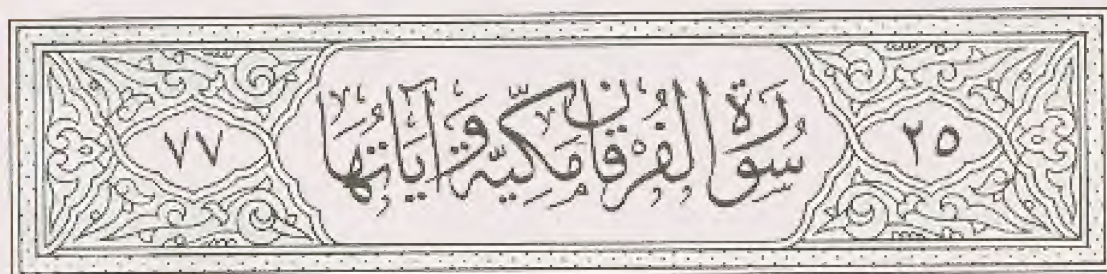 ٢٥
سُورَةُ الْفُرْقَانِ مَكِّيَّة وَآيَاتُهَا
٧٧